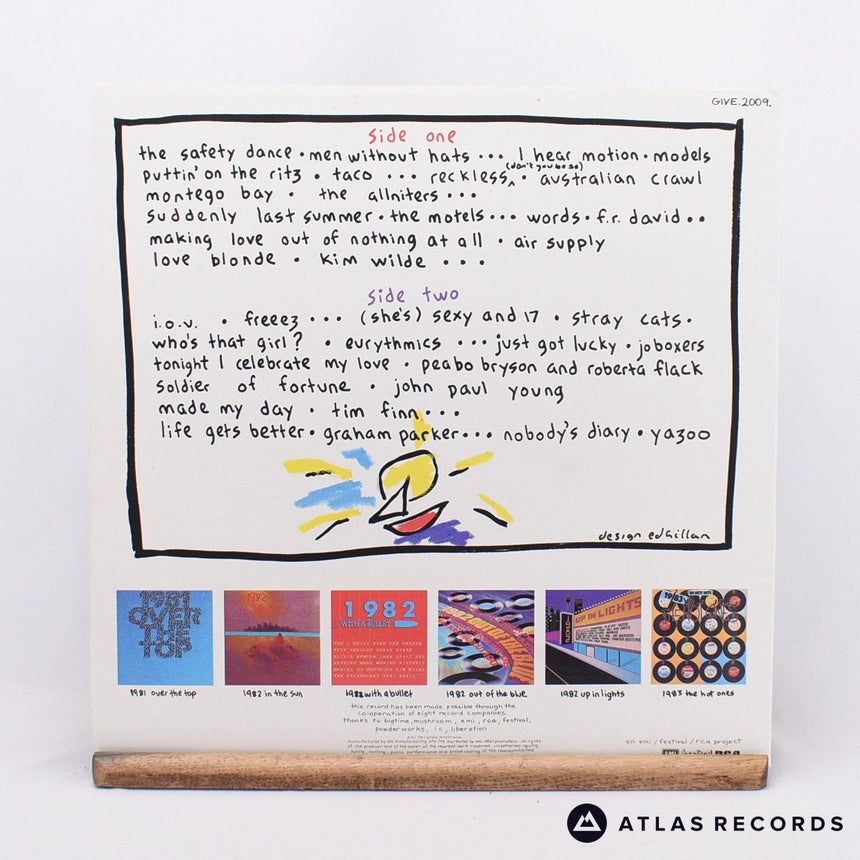 GIVE.2009.
side one
the safety dance • men without hats ... I hear motion • models
(don't you be so)
puttin' on the ritz • taco ... reckless ^ • australian crawl
montego bay • the allniters ...
suddenly last summer • the motels ... words • f.r. david ..
making love out of nothing at all • air supply
love blonde • kim wilde ...
side two
i.o.u. • freeez ... (she's) sexy and 17 • stray cats.
who's that girl? • eurythmics ... just got lucky • joboxers
tonight I celebrate my love • peabo bryson and roberta flack
soldier of fortune • john paul young
made my day • tim finn ...
life gets better • graham parker ... nobody's diary • yazoo
design ed Gillan
1981 OVER THE TOP
1982
1982
WITH A BULLET
UP IN LIGHTS
1983
1981 over the top
1982 in the sun
1982 with a bullet
1982 out of the blue
1982 up in lights
1983 the hot ones
this record has been made possible through the
co-operation of eight record companies.
thanks to bigtime, mushroom, emi, rca, festival,
powderworks, i.c., liberation
an emi / festival / rca project
ATLAS RECORDS